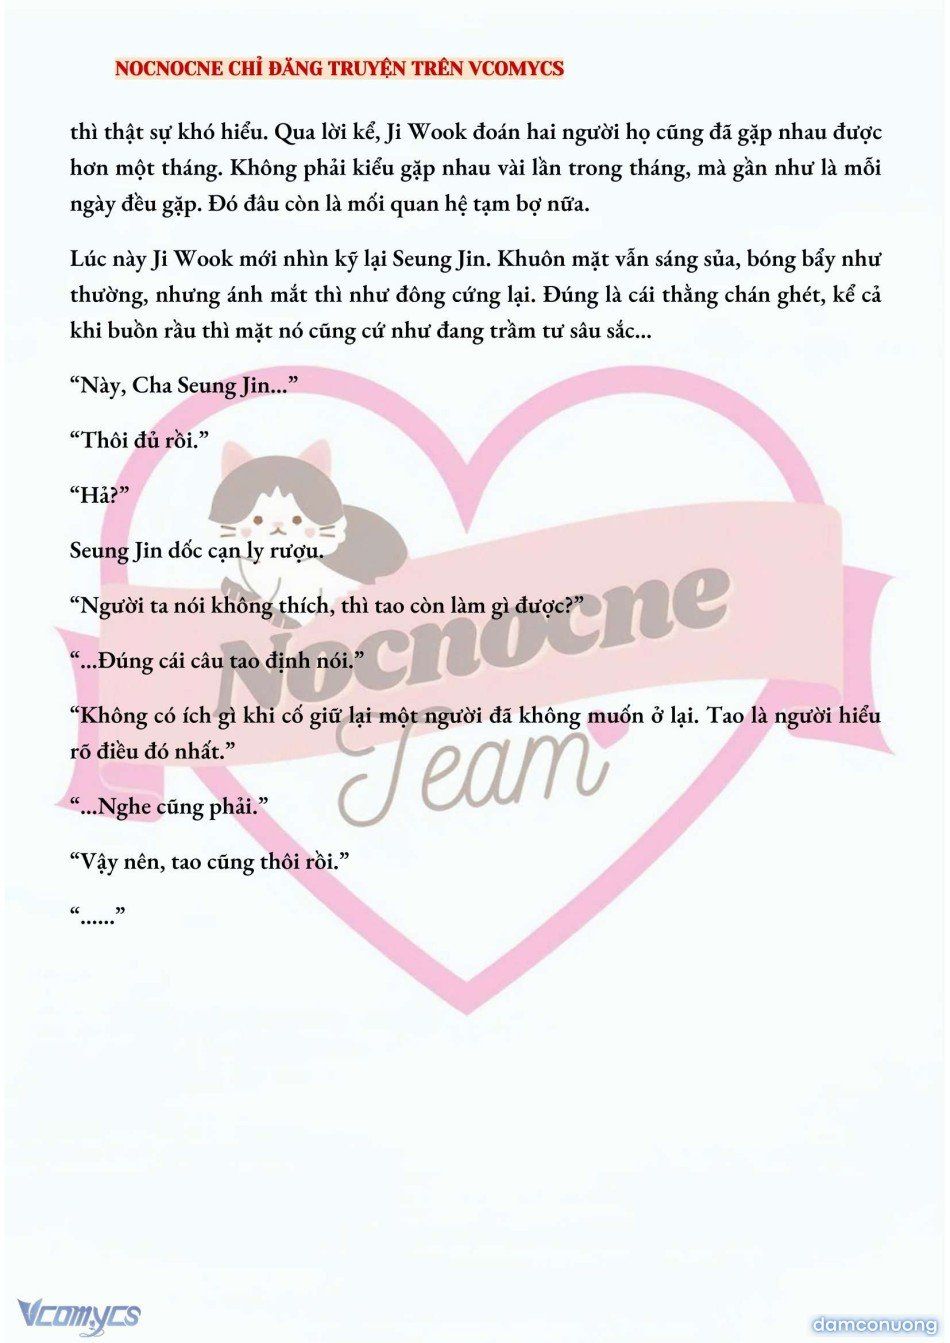 NOCNOCNE CHỈ ĐĂNG TRUYỆN TRÊN VCOMYCS
thì thật sự khó hiểu. Qua lời kể, Ji Wook đoán hai người họ cũng đã gặp nhau được
hơn một tháng. Không phải kiểu gặp nhau vài lần trong tháng, mà gần như là mỗi
ngày đều gặp. Đó đâu còn là mối quan hệ tạm bợ nữa.
Lúc này Ji Wook mới nhìn kỹ lại Seung Jin. Khuôn mặt vẫn sáng sủa, bóng bẩy như
thường, nhưng ánh mắt thì như đông cứng lại. Đúng là cái thằng chán ghét, kể cả
khi buồn rầu thì mặt nó cũng cứ như đang trầm tư sâu sắc...
“Này, Cha Seung Jin...”
“Thôi đủ rồi.”
“Hả?”
Seung Jin dốc cạn ly rượu.
“Người ta nói không thích, thì tao còn làm gì được?”
“...Đúng cái câu tao định nói.”
“Không có ích gì khi cố giữ lại một người đã không muốn ở lại. Tao là người hiểu
rõ điều đó nhất.”
“...Nghe cũng phải.”
“Vậy nên, tao cũng thôi rồi.”
“......”
Nocnocne
Team
Vcomycs
damconuong